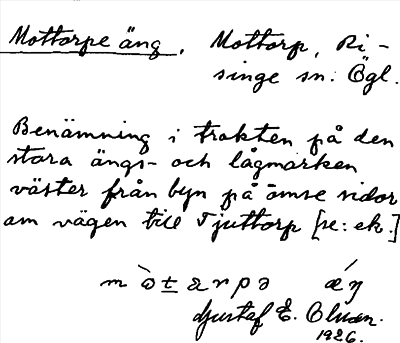 Mottorpe äng. Mottorp, Ri-
singe sn. Ögl.
Benämning i trakten på den
stora ängs- och lågmarken
väster från byn på ömse sidor
om vägen till Tjuttorp [se: ek.]
äŋ
Gustaf E. Olsson.
1926.